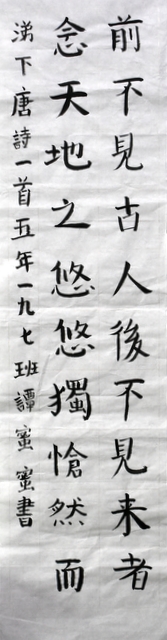 前不見古人後不見来者
念天地之悠悠獨愴然而
涕下唐詩一首五年一九七班譚蜜蜜書